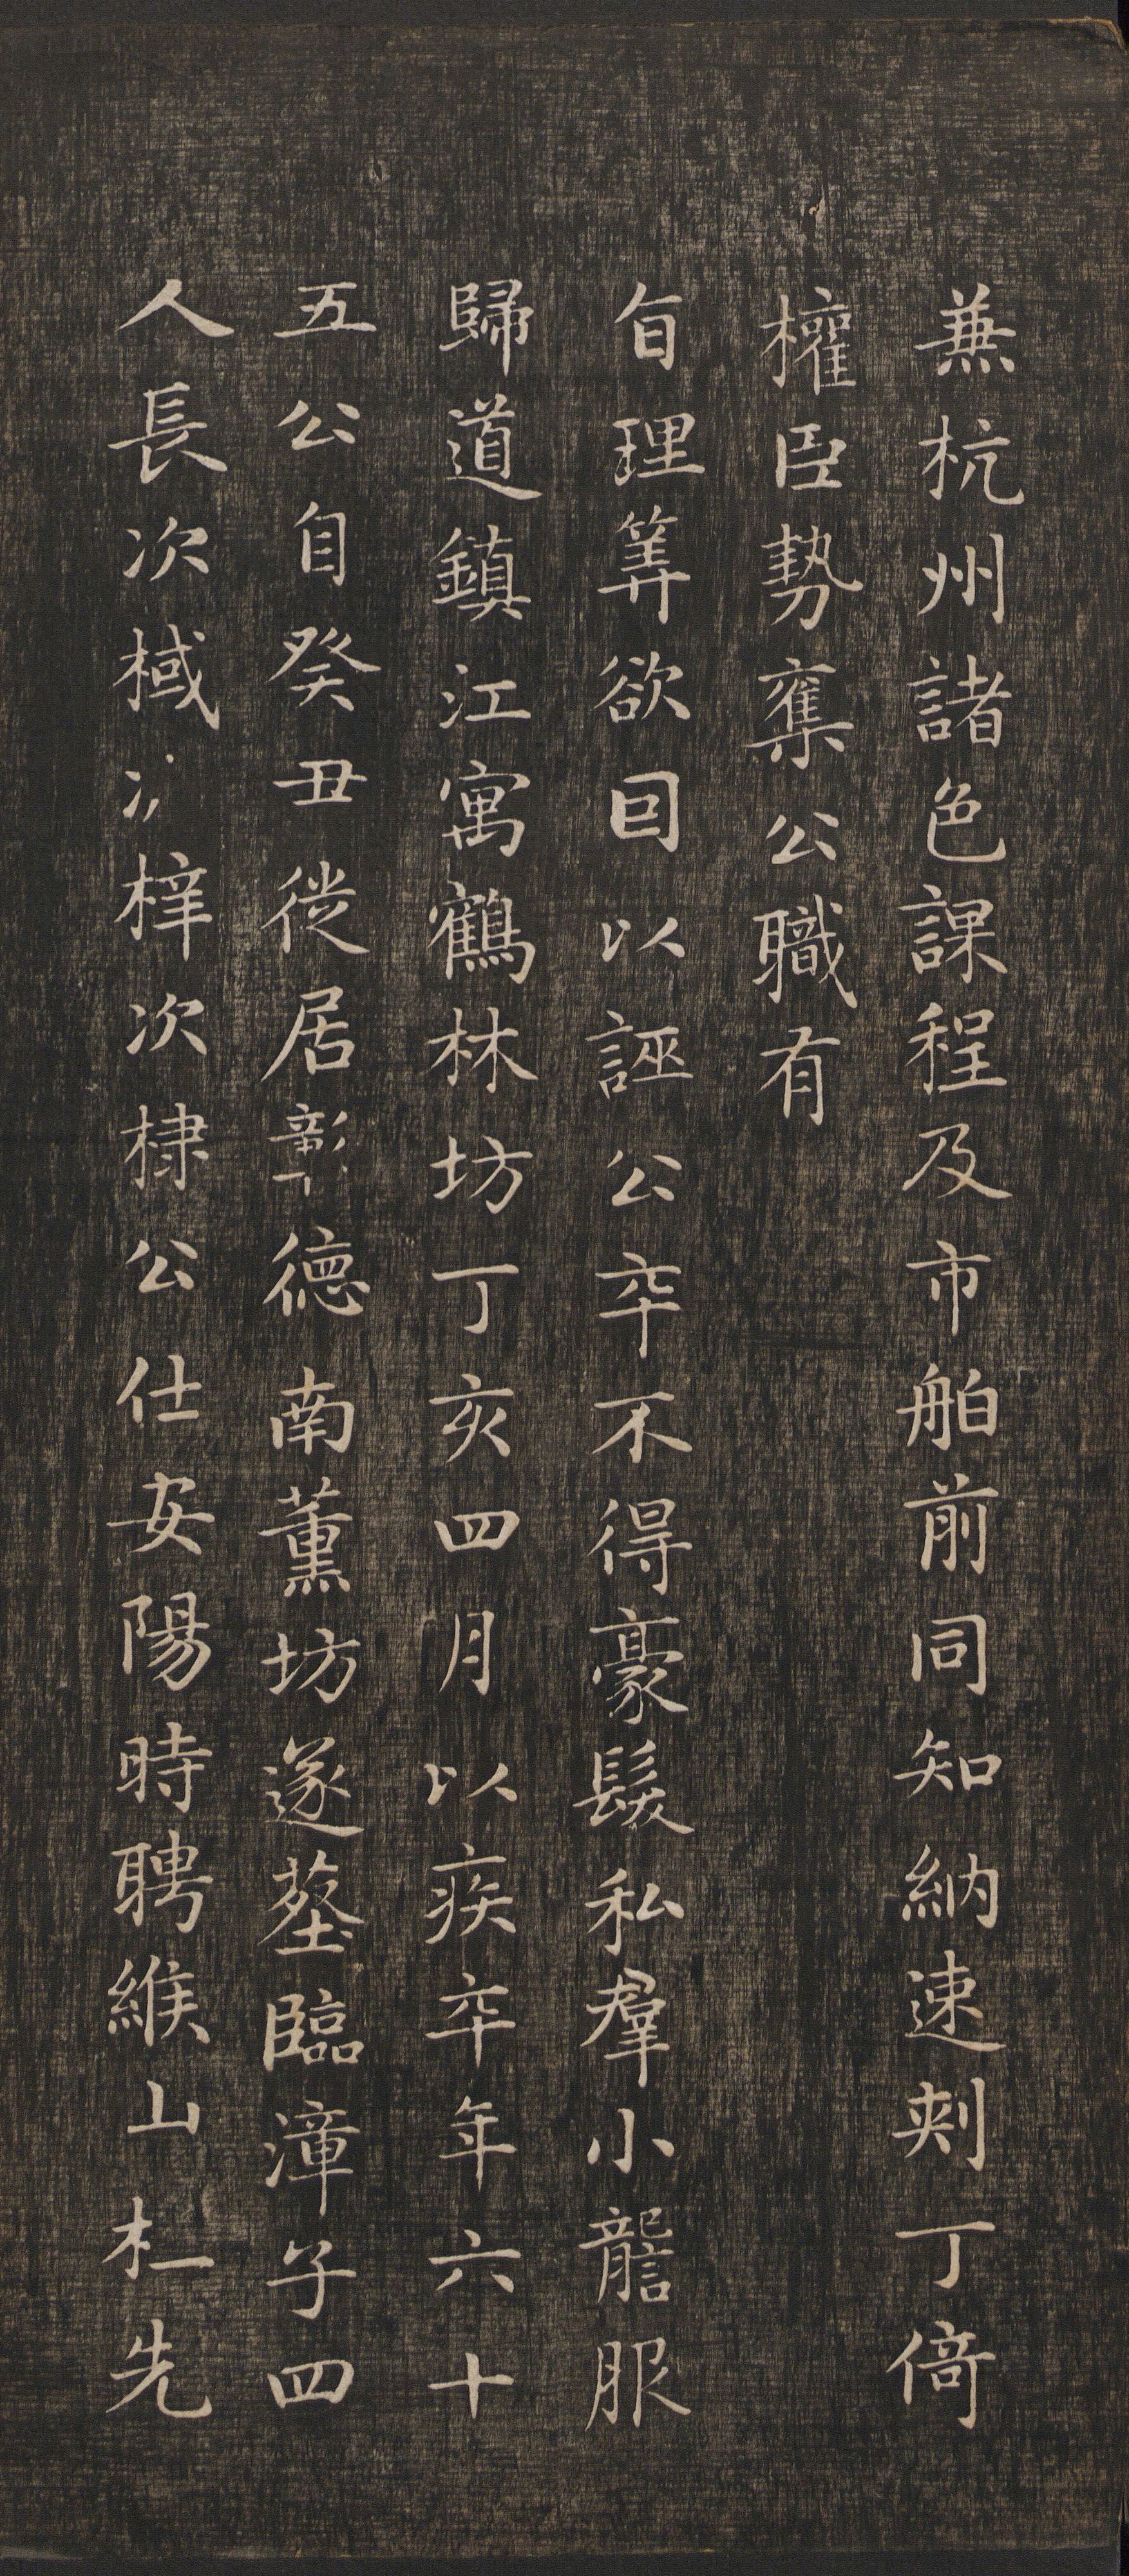 兼杭州諸色課程及市舶前同知納速剌丁倚
權臣勢奪公職有
旨理筭欲因以誣公卒不得豪髮私羣小讋服
歸道鎮江寓鶴林坊丁亥四月以疾卒年六十
五公自癸丑徙居彰德南薰坊遂塟臨漳子四
人長次棫次梓次棣公仕安陽時聘緱山杜先